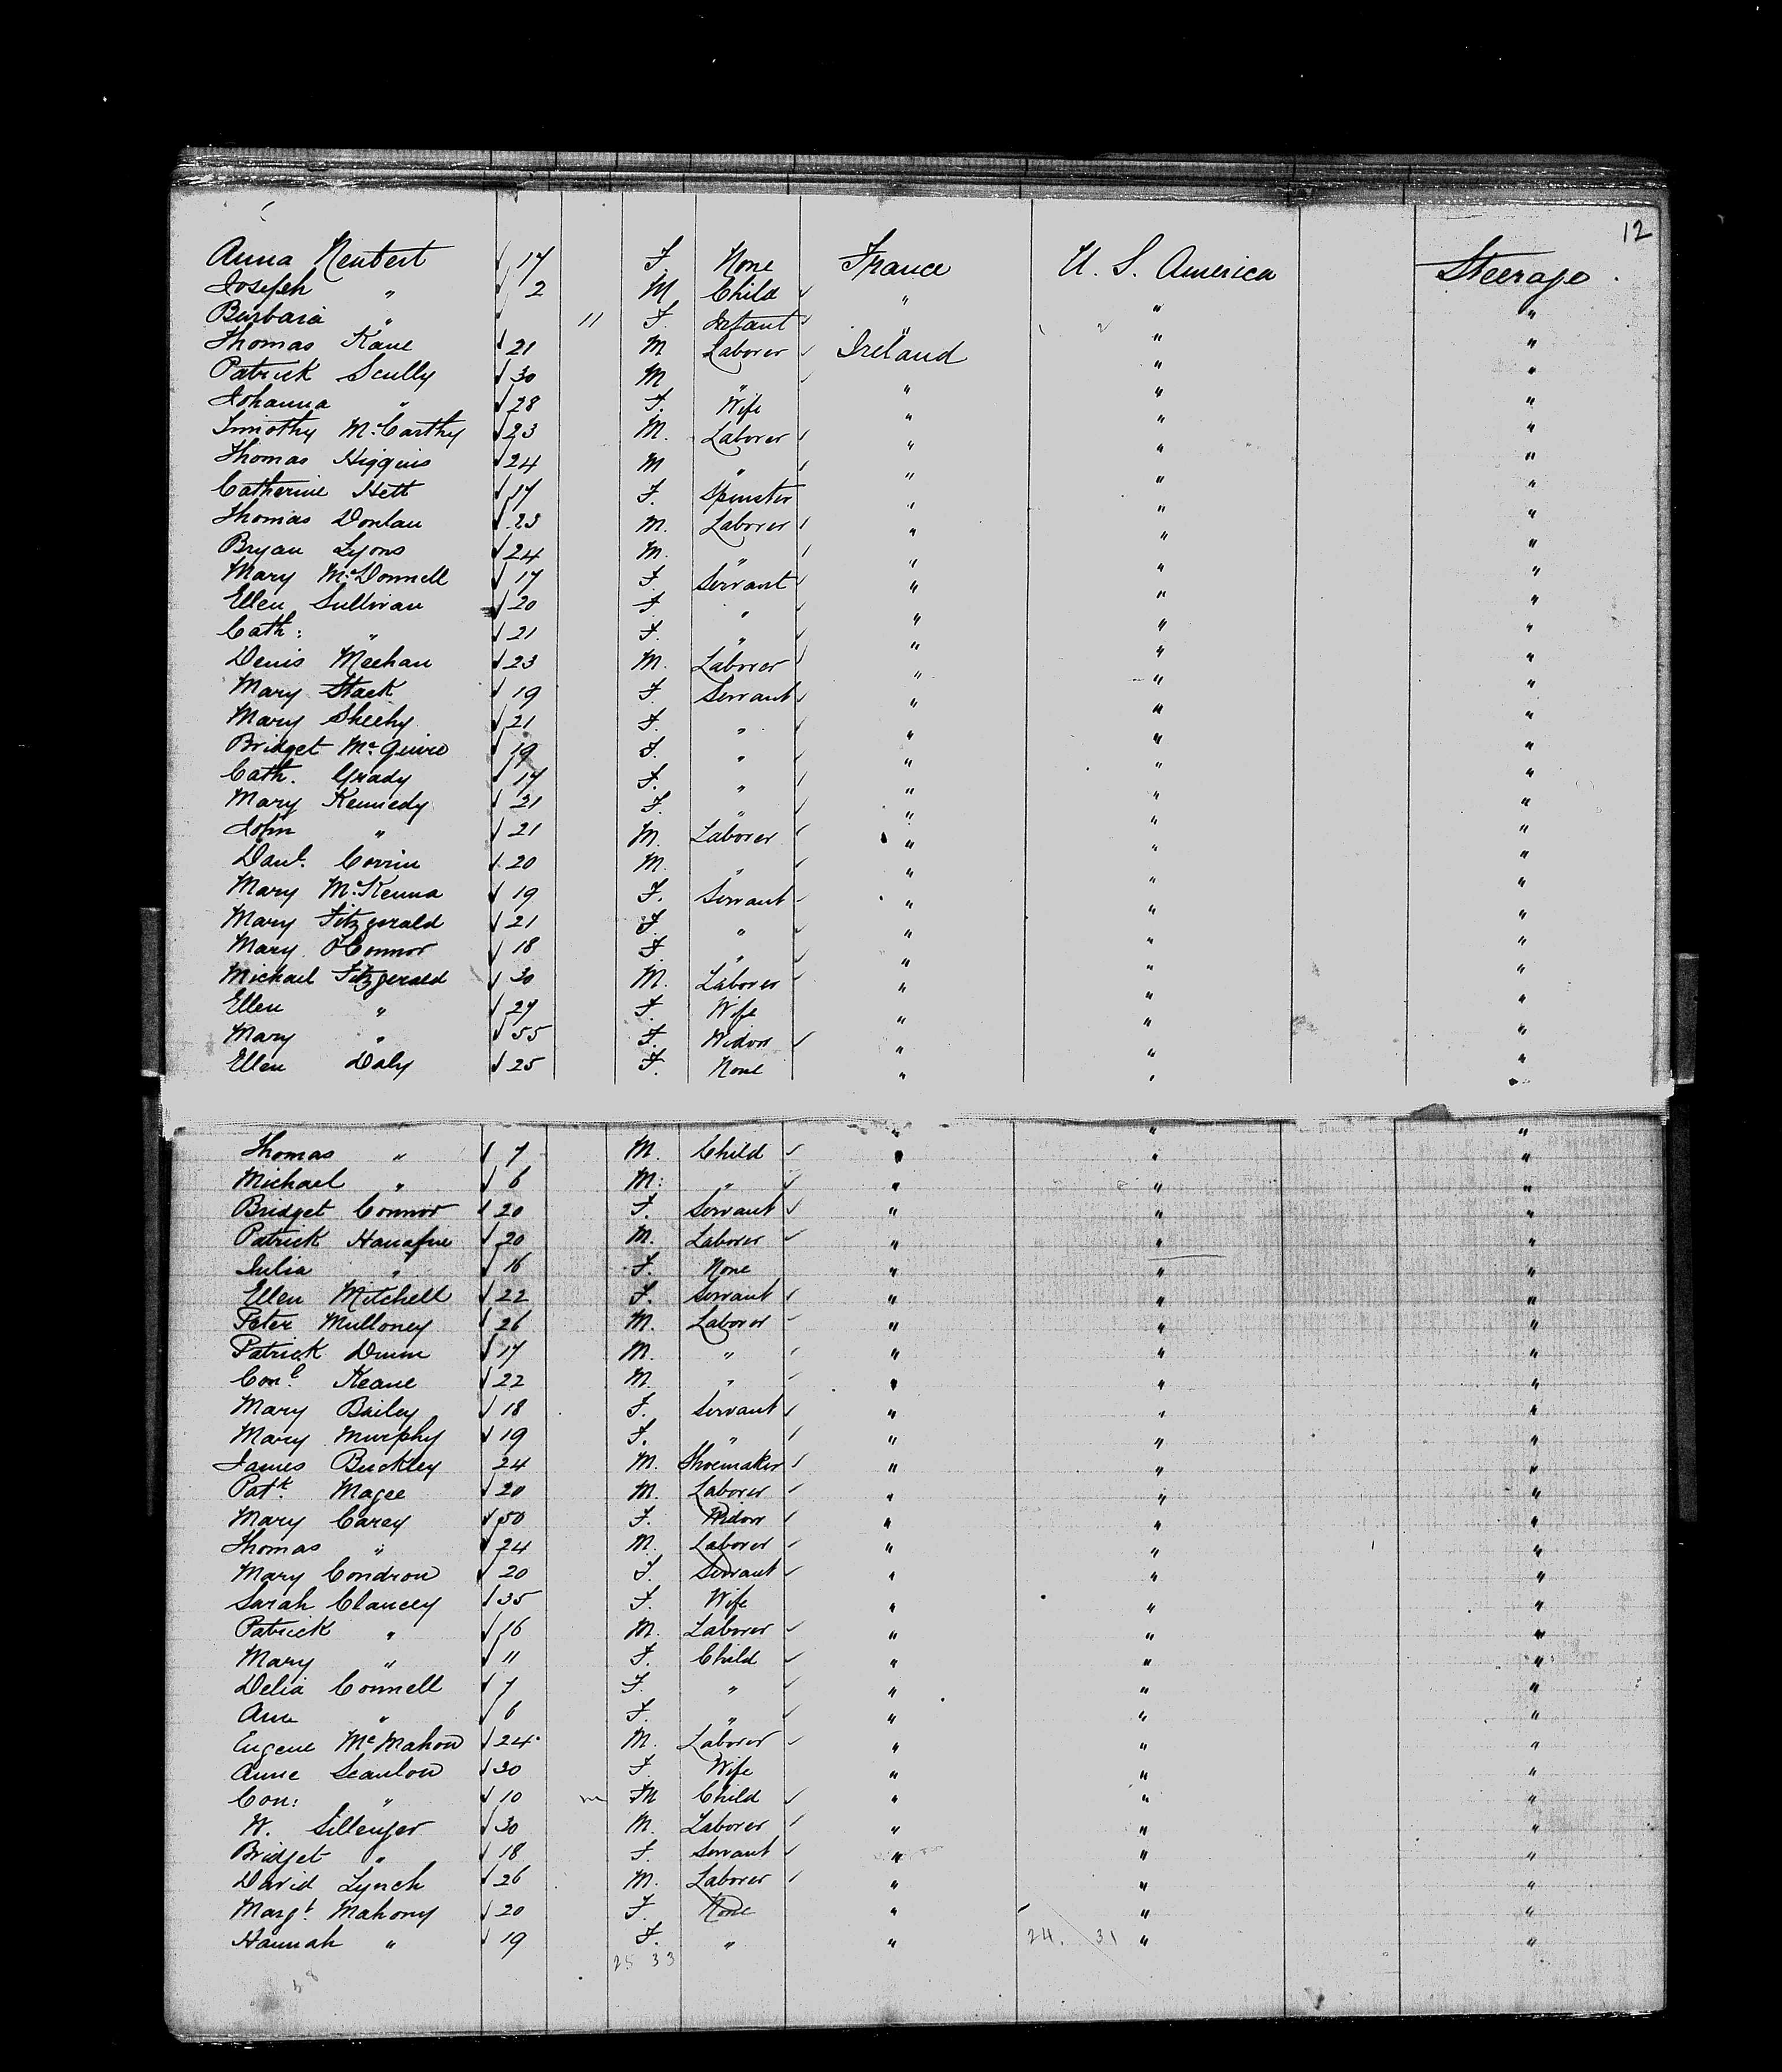 12
Anna Neubert 17 F. None France U. S. America Steerage
Joseph " 2 M Child " " "
Barbara " 11 F. Infant " " "
Thomas Kane 21 M Laborer Ireland " "
Patrick Scully 30 M " " " "
Johanna " 28 F. Wife " " "
Timothy McCarthy 23 M. Laborer " " "
Thomas Higgins 24 M " " " "
Catherine Hett 17 F. Spinster " " "
Thomas Donlan 23 M. Laborer " " "
Bryan Lyons 24 M. " " " "
Mary McDonnell 17 F. Servant " " "
Ellen Sullivan 20 F " " " "
Cath: " 21 F. " " " "
Denis Meehan 23 M. Laborer " " "
Mary Stack 19 F. Servant " " "
Mary Sheehy 21 F. " " " "
Bridget McGuire 19 F. " " " "
Cath. Grady 17 F. " " " "
Mary Kennedy 21 F. " " " "
John " 21 M. Laborer " " "
Danl. Corrin 20 M. " " " "
Mary McKenna 19 F. Servant " " "
Mary Fitzgerald 21 F " " " "
Mary O'Connor 18 F. " " " "
Michael Fitzgerald 30 M. Laborer " " "
Ellen " 27 F. Wife " " "
Mary " 55 F. Widow " " "
Ellen Daly 25 F. None " " "
Thomas " 7 M. Child " " "
Michael " 6 M: " " " "
Bridget Connor 20 F. Servant " " "
Patrick Hanafin 20 M. Laborer " " "
Julia " 16 F. None " " "
Ellen Mitchell 22 F. Servant " " "
Peter Mulloney 26 M. Laborer " " "
Patrick Dunn 17 M. " " " "
Conl. Keane 22 M. " " " "
Mary Bailey 18 F. Servant " " "
Mary Murphy 19 F. " " " "
James Buckley 24 M. Shoemaker " " "
Patk. Magee 20 M. Laborer " " "
Mary Carey 50 F. Widow " " "
Thomas " 24 M. Laborer " " "
Mary Condron 20 F. Servant " " "
Sarah Clancey 35 F. Wife " " "
Patrick " 16 M. Laborer " " "
Mary " 11 F. Child " " "
Delia Connell 7 F. " " " "
Ann " 6 F. " " " "
Eugene McMahon 24 M. Laborer " " "
Anne Scanlon 30 F. Wife " " "
Con: " 10 m M Child " " "
W. Sillenger 30 M. Laborer " " "
Bridget " 18 F. Servant " " "
David Lynch 26 M. Laborer " " "
Margt. Mahony 20 F. None " " "
Hannah " 19 F. " " 24. 31 " "
25 33